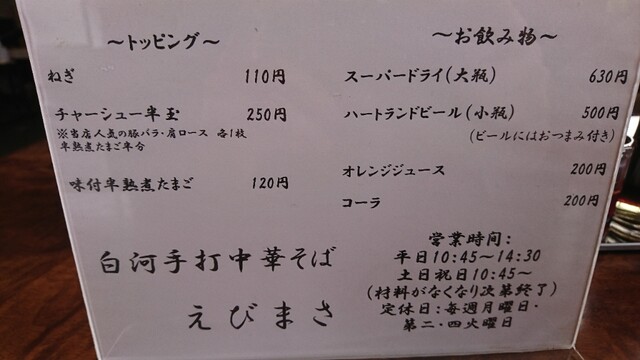 ～トッピング～
ねぎ 110円
チャーシュー半玉 250円
※当店人気の豚バラ・肩ロース 各1枚
半熟煮たまご半分
味付半熟煮たまご 120円
～お飲み物～
スーパードライ(大瓶) 630円
ハートランドビール(小瓶) 500円
(ビールにはおつまみ付き)
オレンジジュース 200円
コーラ 200円
白河手打中華そば
えびまさ
営業時間:
平日10:45～14:30
土日祝日10:45～
(材料がなくなり次第終了)
定休日:毎週月曜日・
第二・四火曜日